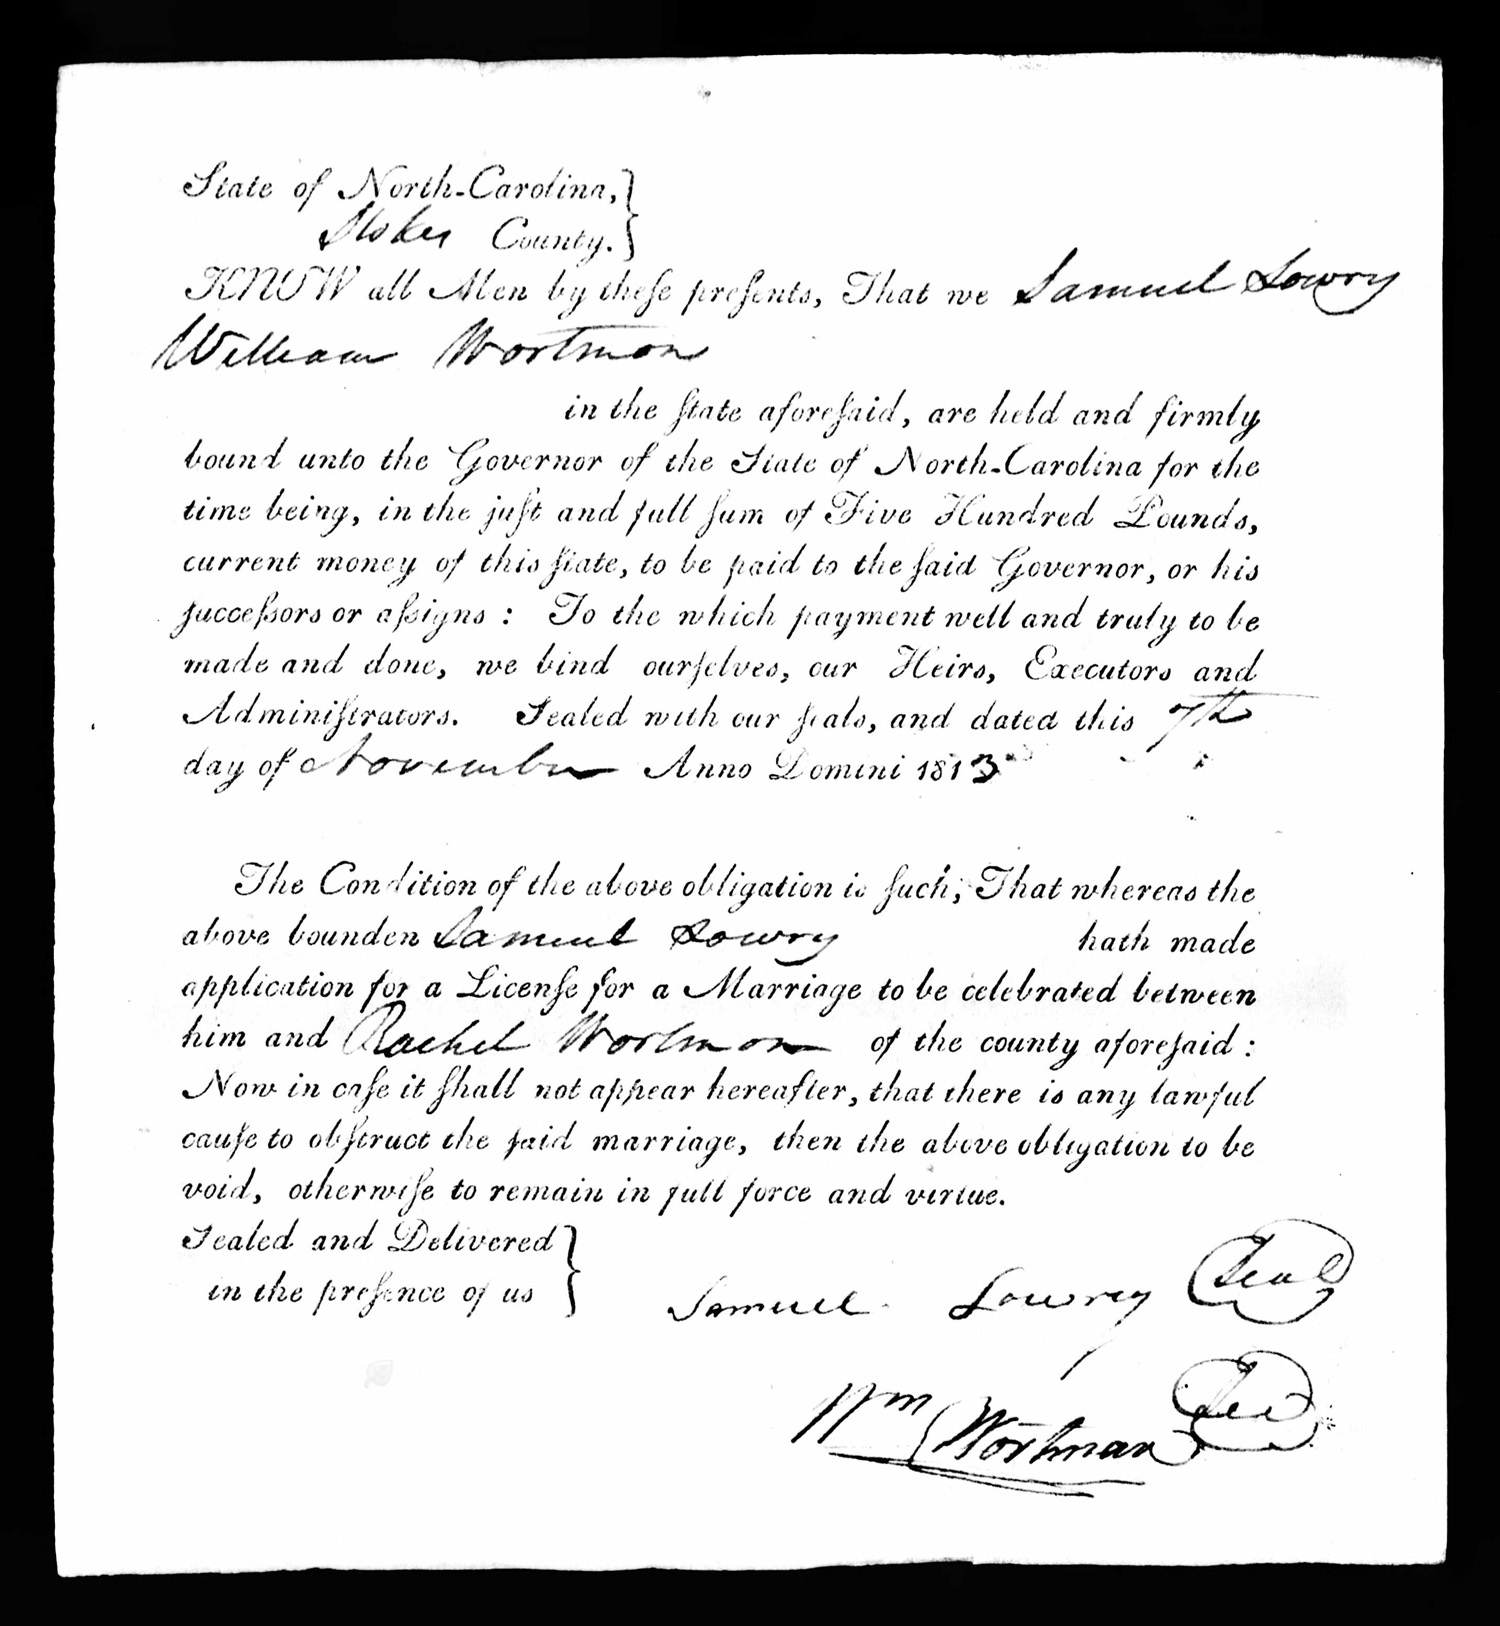 State of North-Carolina,
Stokes County.
KNOW all Men by theſe preſents, That we Samuel Lowry
William Wortman
in the ſtate aforeſaid, are held and firmly
bound unto the Governor of the State of North-Carolina for the
time being, in the juſt and full ſum of Five Hundred Pounds,
current money of this ſtate, to be paid to the ſaid Governor, or his
ſucceſſors or aſſigns: To the which payment well and truly to be
made and done, we bind ourſelves, our Heirs, Executors and
Adminiſtrators. Sealed with our ſeals, and dated this 7th
day of November Anno Domini 1813
The Condition of the above obligation is ſuch, That whereas the
above bounden Samuel Lowry hath made
application for a Licenſe for a Marriage to be celebrated between
him and Rachel Wortman of the county aforeſaid:
Now in caſe it ſhall not appear hereafter, that there is any lawful
cauſe to obſtruct the ſaid marriage, then the above obligation to be
void, otherwiſe to remain in full force and virtue.
Sealed and Delivered
in the preſence of us
Samuel Lowrey Seal
Wm Wortman Seal